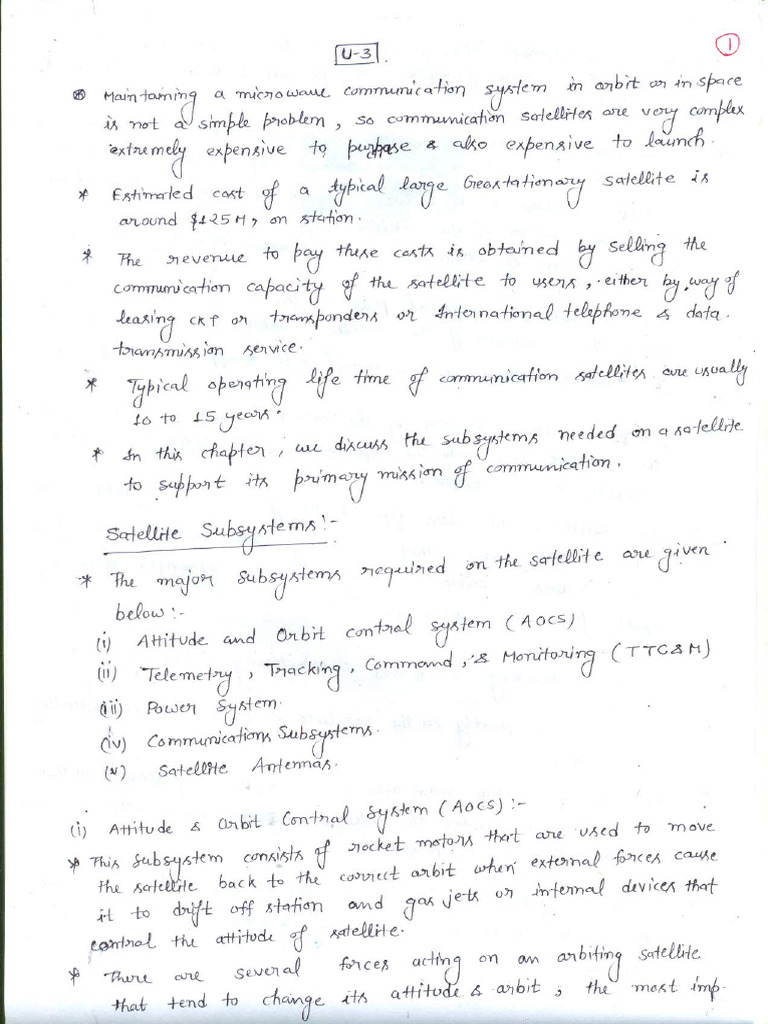 U-3
1
* Maintaining a microwave communication system in orbit or in space
is not a simple problem, so communication satellites are very complex
extremely expensive to purchase & also expensive to launch.
* Estimated cost of a typical large Geostationary satellite is
around $125M, on station.
* The revenue to pay these costs is obtained by selling the
communication capacity of the satellite to users, either by way of
leasing CKT or transponders or International telephone & data
transmission service.
* Typical operating life time of communication satellites are usually
10 to 15 years.
* In this chapter, we discuss the subsystems needed on a satellite
to support its primary mission of communication.
Satellite Subsystems:-
* The major subsystems required on the satellite are given
below:-
(i) Attitude and Orbit control system (AOCS)
(ii) Telemetry, Tracking, Command, & Monitoring (TTC&M)
(iii) Power System.
(iv) Communications Subsystems.
(v) Satellite Antennas.
(i) Attitude & Orbit Control System (AOCS):-
* This subsystem consists of rocket motors that are used to move
the satellite back to the correct orbit when external forces cause
it to drift off station and gas jets or internal devices that
control the attitude of satellite.
* There are several forces acting on an orbiting satellite
that tend to change its attitude & orbit, the most imp.